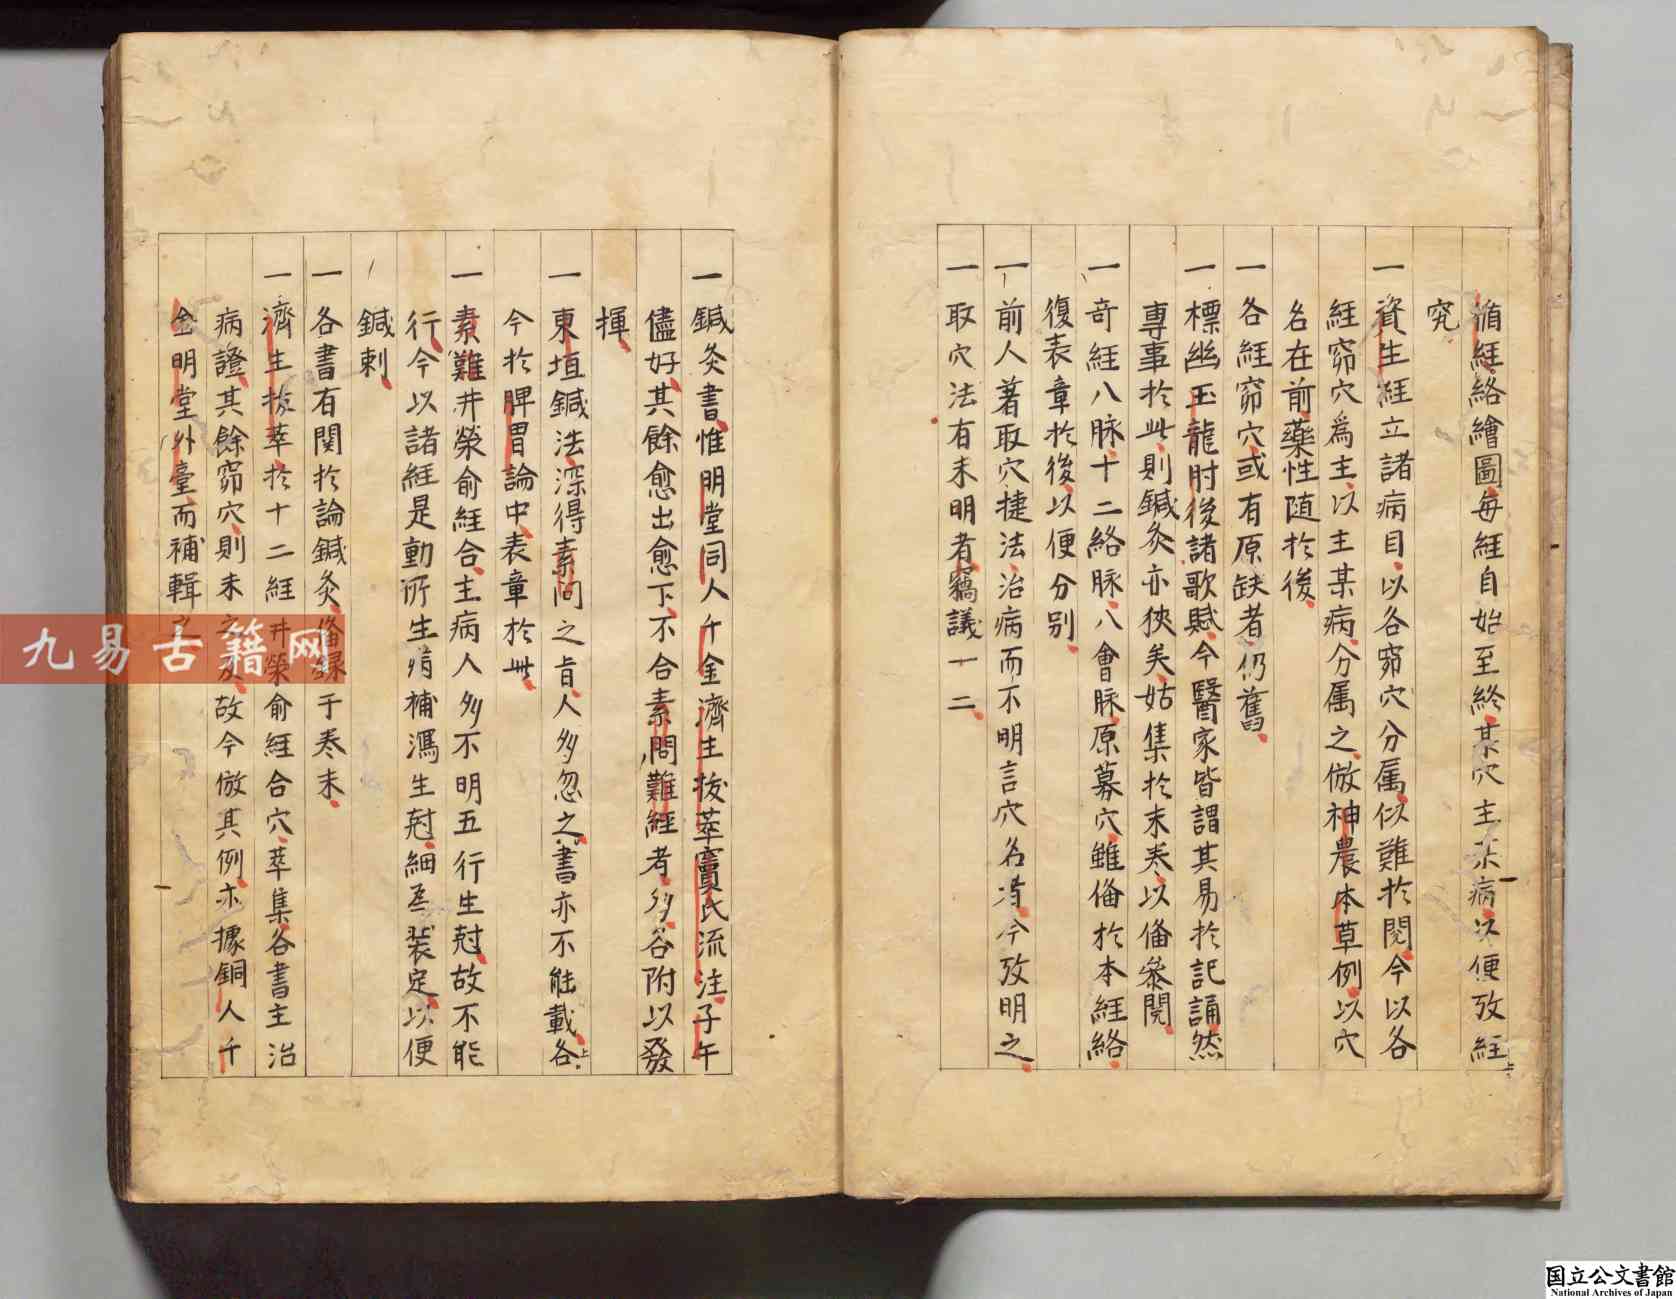 循経絡繪圖每経自始至終某穴主某病以便攷経
究
一資生経立諸病目以各窌穴分属似難於閱今以各
経窌穴爲主以主某病分属之倣神農本草例以穴
名在前藥性随於後
一各経窌穴或有原缺者仍舊
一標幽玉龍肘後諸歌賦今醫家皆謂其易於記誦然
專事於此則鍼灸亦狹矣姑集於末卷以俻叅閱
一奇経八脉十二絡脉八會脉原募穴雖俻於本経絡
復表章於後以便分别
一前人著取穴捷法治病而不明言穴名今攷明之
一取穴法有未明者竊議一二
一鍼灸書惟明堂同人千金濟生拔萃竇氏流注子午
儘好其餘愈出愈下不合素問難経者多各附以發
揮
一東垣鍼法深得素问之旨人多忽之書亦不能載各
今於脾胃論中表章於此
一素難井滎俞経合主病人多不明五行生尅故不能
行今以諸経是動所生病補瀉生尅細爲裝定以便
鍼刺
一各書有関於論鍼灸俻録于卷末
一濟生拔萃於十二経井滎俞経合穴萃集各書主治
病證其餘窌穴則未之及故今倣其例亦據銅人千
金明堂外臺而補輯之
九易古籍网
国立公文書館
National Archives of Japan